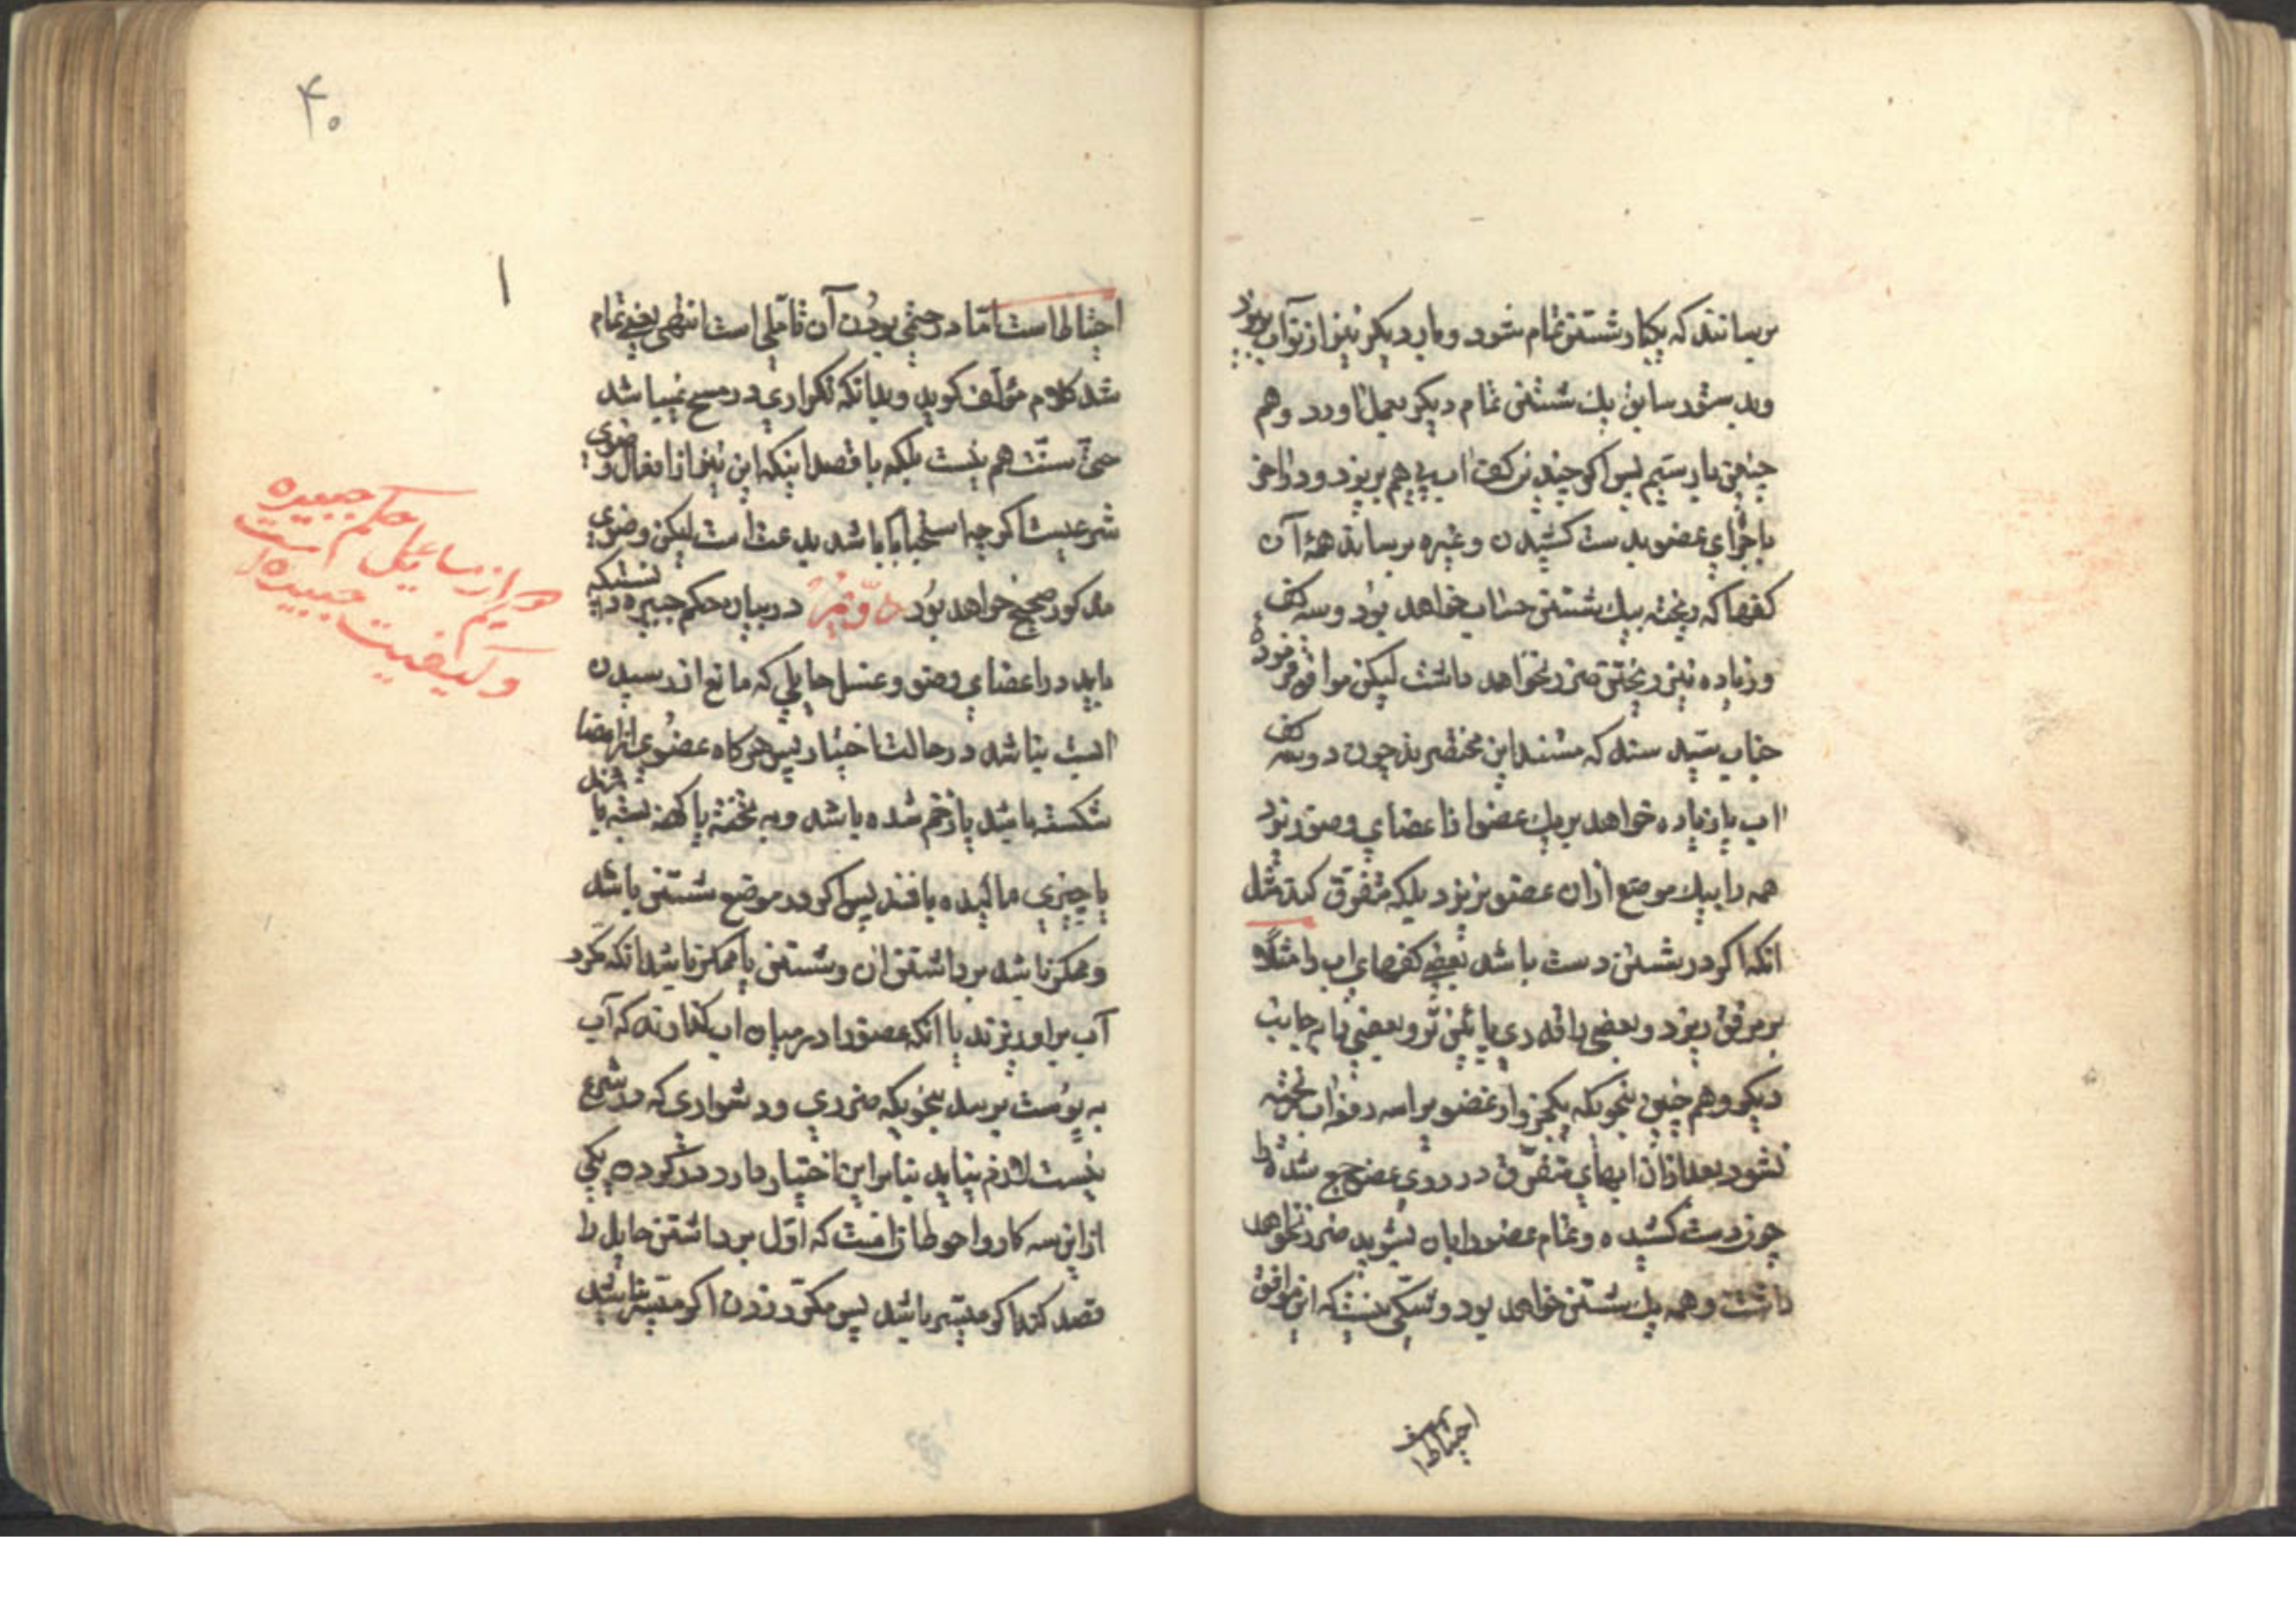 برساند که یکبار شستن تمام شود و بار دیکر نیز از نو آب بریزد
و بدستور سابق یک شستن تمام دیکر بعمل اورد و هم
چنین بار سیم پس اکر چندین کف اب پی هم بریزد و در اخر
باجزای عضو بدست کشیدن و غیره برساند همهٔ آن
کفها که ریخته بیک شستن حساب خواهد بود و سه کف
و زیاده نیز ریختن ضرر نخواهد داشت لیکن موافق فرمودهٔ
جناب سید سند که مستند این مختصرند چون دو سه کف
اب یا زیاده خواهد بر یک عضو از اعضای وضو ریزد
همه را بیک موضع ازان عضو نریزد بلکه متفرق کند مثل
انکه اکر در شستن دست باشد بعضی کفهای اب را مثلًا
بر مرفق ریزد و بعضی را قدری پائین تر و بعضی را بجانب
دیکر و هم چنین بنحویکه یکجزو از عضو بر او سه دفعه اب ریخته
نشود بعد ازان ابهای متفرق در روی عضو جمع شده را
چون دست کشیده و تمام عضو را بان بشوید ضرر نخواهد
داشت و همه یک شستن خواهد بود و شکی نیست که این موافق
احتیاط است
۴۰
احتیاط است امّا در حتمی بودن آن تاملی است انتهی یعنی تمام
شد کلام مؤلف کوید و بدانکه تکراری در مسح نمیباشد
حتی سنّت هم نیست بلکه با قصد اینکه این نیز از افعال وضوی
شرعیست اکرچه استحبابا باشد بدعت است لیکن وضوی
مذکور صحیح خواهد بود دوّم در بیان حکم جبیره دانستیکه
باید در اعضای وضو و غسل حایلی که مانع از رسیدن
اب است نباشد در حالت اختیار پس هرکاه عضوی از اعضا
شکسته باشد یا زخم شده باشد و به تخته یا کهنه بسته یا مرهم
یا چیزی مالیده باشند پس اکر در موضع شستن باشد
و ممکن باشد برداشتن ان و شستن یا ممکن باشد انکه مکرر
آب بر او ریزند یا انکه عضو را در میان اب کذارند که آب
به پوست برسد بنحویکه ضرری و دشواری که در شرع
نیست لازم نیاید بنابراین اختیار دارد در کردن یکی
از این سه کار و احوط انست که اوّل برداشتن حایل را
قصد کند اکر میسر باشد پس مکرّر زدن اکر میسّر نباشد
دویم از مسایل حکم جبیره است
و کیفیت جبیره